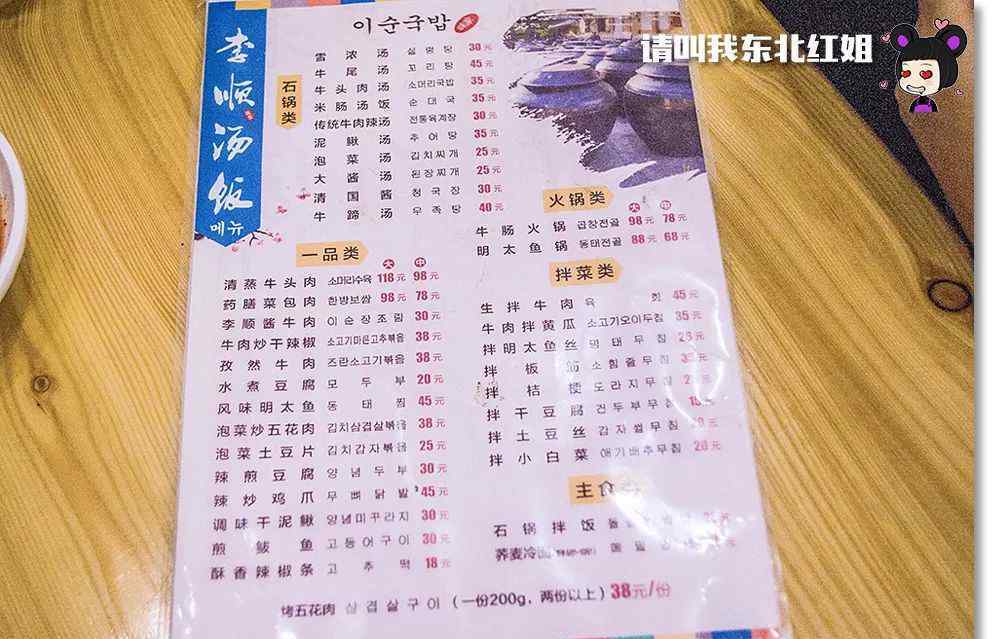 请叫我东北红姐
李顺汤饭
메뉴
이순국밥
石锅类
雪浓汤 설렁탕 30元
牛尾汤 꼬리탕 45元
牛头肉汤 소머리국밥 35元
米肠汤饭 순대국 35元
传统牛肉辣汤 전통육계장 30元
泥鳅汤 추어탕 35元
泡菜汤 김치찌개 25元
大酱汤 된장찌개 25元
清国酱 청국장 30元
牛蹄汤 우족탕 40元
一品类
大 中
清蒸牛头肉 소머리수육 118元 98元
药膳菜包肉 한방보쌈 98元 78元
李顺酱牛肉 이순장조림 30元
牛肉炒干辣椒 소고기마른고추볶음 38元
孜然牛肉 즈란소고기볶음 38元
水煮豆腐 모두부 20元
风味明太鱼 동태찜 45元
泡菜炒五花肉 김치삼겹살볶음 38元
泡菜土豆片 김치감자볶음 25元
辣煎豆腐 양념두부 30元
辣炒鸡爪 무뼈닭발 45元
调味干泥鳅 양념미꾸라지 30元
煎鲅鱼 고등어구이 30元
酥香辣椒条 고추떡 18元
火锅类
大 中
牛肠火锅 곱창전골 98元 78元
明太鱼锅 동태전골 88元 68元
拌菜类
生拌牛肉 육회 45元
牛肉拌黄瓜 소고기오이무침 35元
拌明太鱼丝 명태무침 28元
拌板筋 소힘줄무침 元
拌桔梗 도라지무침 元
拌干豆腐 건두부무침 元
拌土豆丝 감자썰무침 元
拌小白菜 애기배추무침 20元
主食
石锅拌饭
荞麦冷面
烤五花肉 삼겹살구이 (一份200g,两份以上) 38元/份